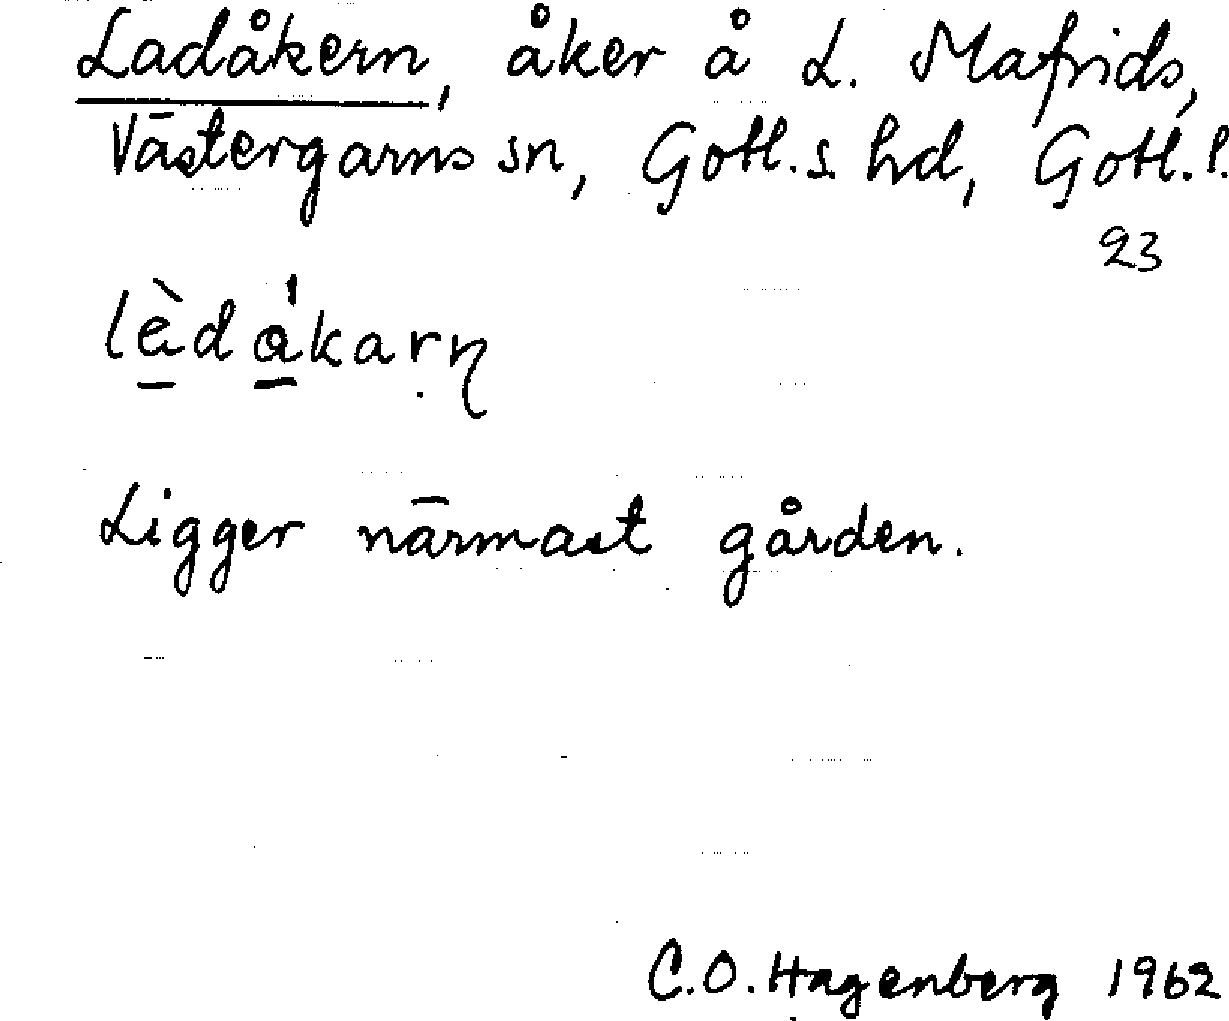 Ladåkern, åker å L. Mafrids,
Västergarns sn, Gotl. s. hd, Gotl. l.
23
lèdåkarn
Ligger närmast gården.
C.O. Hagenberg 1962